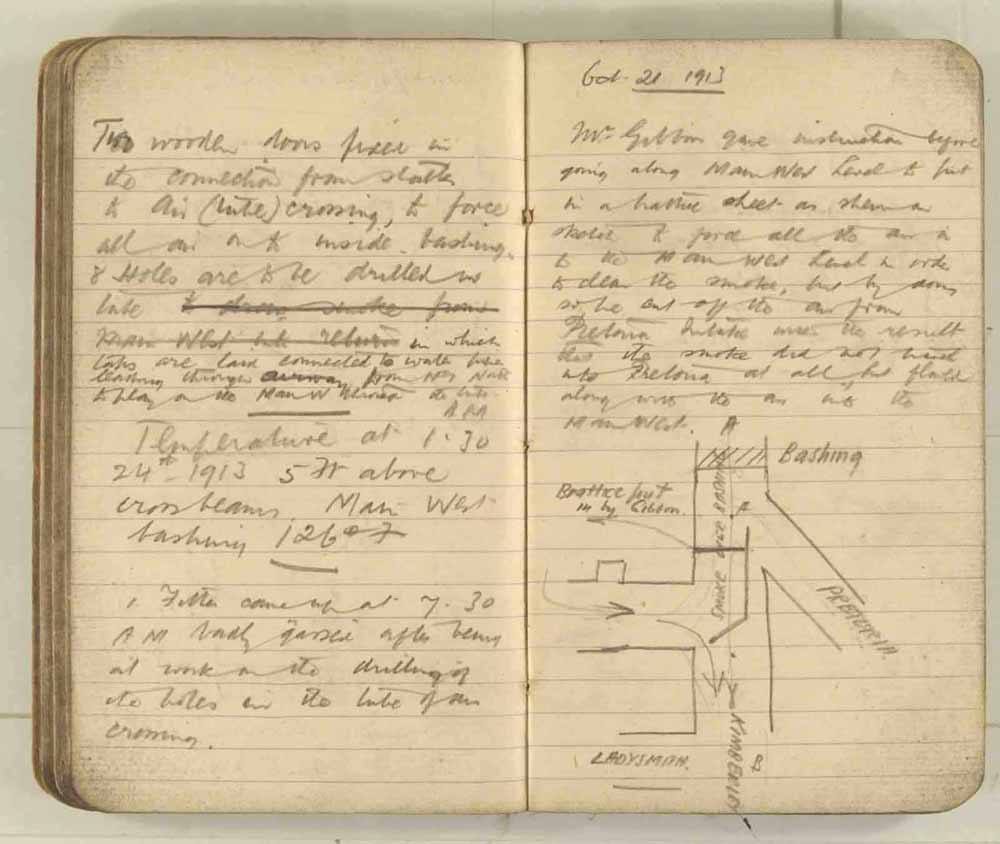 Two wooden doors fixed in
the connection from slatter
to Air (tube) crossing, to force
all air on to inside. bashing,
8 Holes are to be drilled in
tube to draw smoke from
Main West into return in which
taps are laid connected to water pipe
leading through airway from No 1 North
to play on the Main W
Temperature at 1.30
24th 1913 5 Ft above
crossbeams, Main West
bashing 126° F
1 Fitter came up at 7.30
AM badly gassed after being
at work on the drilling of
the holes in the tube of air
crossing.
Oct. 21 1913
Mr Gibbon gave instruction before
going along Main West Level to put
in a brattice sheet as shewn on
sketch to force all the air in
to the Main West Level in order
to clear the smoke, but by doing
so he cut off the air from
Pretoria Intake with the result
that the smoke did not travel
into Pretoria at all, but
along with the air into the
Main West.
A
Bashing
Brattice put
in by Gibbon.
A
SMOKE OVER BASHING
PRETORIA
KIMBERLEY
B
LADYSMITH.